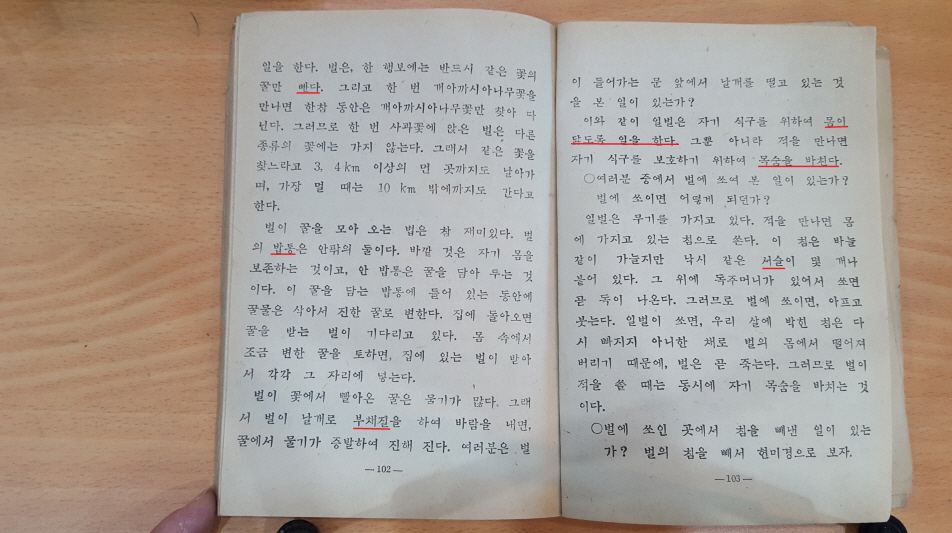 일을 한다. 벌은, 한 행보에는 반드시 같은 꽃의
꿀만 빤다. 그리고 한 번 개아까시아나무꽃을
만나면 한참 동안은 개아까시아나무꽃만 찾아 다
닌다. 그러므로 한 번 사과꽃에 앉은 벌은 다른
종류의 꽃에는 가지 않는다. 그래서 같은 꽃을
찾느라고 3, 4 km 이상의 먼 곳까지도 날아가
며, 가장 멀 때는 10 km 밖에까지도 간다고
한다.
벌이 꿀을 모아 오는 법은 참 재미있다. 벌
의 밥통은 안팎의 둘이다. 바깥 것은 자기 몸을
보존하는 것이고, 안 밥통은 꿀을 담아 두는 것
이다. 이 꿀을 담는 밥통에 들어 있는 동안에
꿀물은 삭아서 진한 꿀로 변한다. 집에 돌아오면
꿀을 받는 벌이 기다리고 있다. 몸 속에서
조금 변한 꿀을 토하면, 집에 있는 벌이 받아
서 각각 그 자리에 넣는다.
벌이 꽃에서 빨아온 꿀은 물기가 많다. 그래
서 벌이 날개로 부채질을 하여 바람을 내면,
꿀에서 물기가 증발하여 진해 진다. 여러분은 벌
— 102 —
이 들어가는 문 앞에서 날개를 떨고 있는 것
을 본 일이 있는가?
이와 같이 일벌은 자기 식구를 위하여 몸이
닳도록 일을 한다. 그뿐 아니라 적을 만나면
자기 식구를 보호하기 위하여 목숨을 바친다.
○여러분 중에서 벌에 쏘여 본 일이 있는가?
벌에 쏘이면 어떻게 되던가?
일벌은 무기를 가지고 있다. 적을 만나면 몸
에 가지고 있는 침으로 쏜다. 이 침은 바늘
같이 가늘지만 낚시 같은 서슬이 몇 개나
붙어 있다. 그 위에 독주머니가 있어서 쏘면
곧 독이 나온다. 그러므로 벌에 쏘이면, 아프고
붓는다. 일벌이 쏘면, 우리 살에 박힌 침은 다
시 빠지지 아니한 채로 벌의 몸에서 떨어져
버리기 때문에, 벌은 곧 죽는다. 그러므로 벌이
적을 쏠 때는 동시에 자기 목숨을 바치는 것
이다.
○벌에 쏘인 곳에서 침을 빼낸 일이 있는
가? 벌의 침을 빼서 현미경으로 보자.
— 103 —